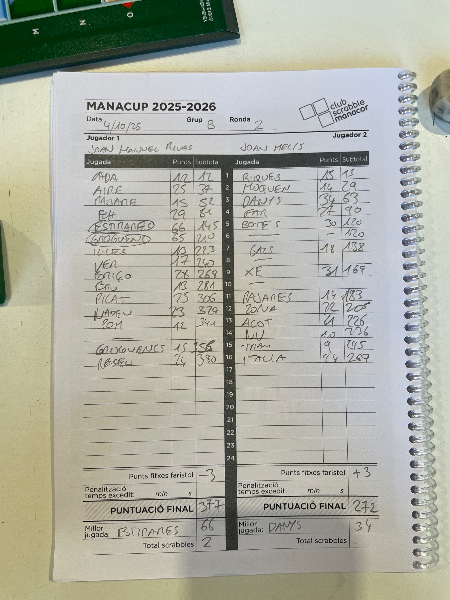 MANACUP 2025-2026
club
scrabble
manacor
Data 4/10/25 Grup B Ronda 2
Jugador 1 Jugador 2
JOAN MANUEL RIVAS JOAN MELIS
Jugada Punts Subtotal Jugada Punts Subtotal
1 RIQUES 15 15
AIRE 25 37 2 MOQUEN 14 29
15 52 3 DANYS 34 63
EH 29 81 4 FAR 27 90
ESTIRARES 66 5 BOTES 30 120
GROGUENC 65 210 6 - 120
7 GALS 18 138
VER 17 240 8
28 268 9 XE 31 169
13 281 10
PICAT 25 306 11 14 183
23 329 12 ZONA 22 205
12 341 13 ACOT 21 226
14 10 236
GROGUENCS 15 356 15 9 245
24 380 16 ITALIA 24 269
17
18
19
20
21
22
23
24
Punts fitxes faristol -3 Punts fitxes faristol +3
Penalització
temps excedit: min s Penalització
temps excedit: min s
PUNTUACIÓ FINAL 377 PUNTUACIÓ FINAL 272
Millor
jugada: ESTIRARES 66 Millor
jugada: DANYS 34
Total scrabbles 2 Total scrabbles